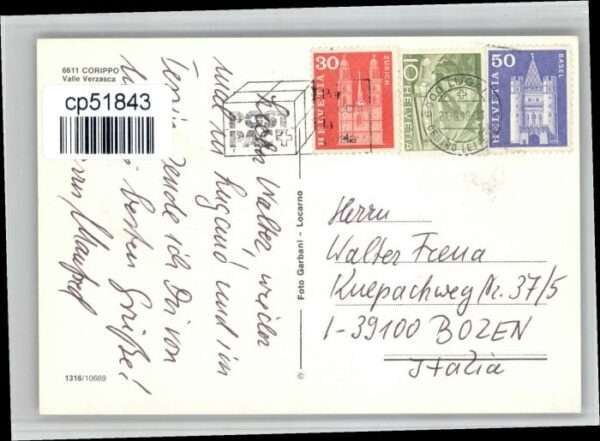 6611 CORIPPO
Valle Verzasca
cp51843
30
HELVETIA
ZUERICH
10
HELVETIA
50
HELVETIA
BASEL
Lieber Walter, wieder
mal in Lugano und im
Tessin sende ich Dir von
besten Grüße!
Manfred
Foto Garbani - Locarno
©
1316/10689
Herrn
Walter Frena
Kuepachweg Nr. 37/5
I-39100 BOZEN
Italia